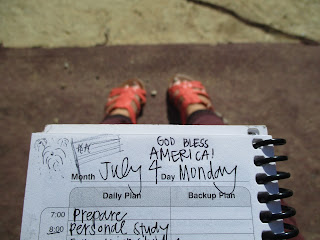 GOD BLESS
AMERICA!
Month July 4 Day Monday
Daily Plan Backup Plan
7:00 Prepare
8:00 Personal Study